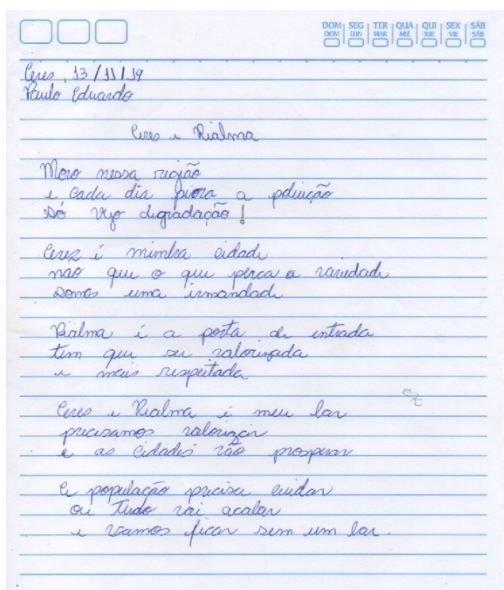 DOM SEG TER QUA QUI SEX SÁB
DOM LUN MAR MIÉ JUE VIE SÁB
Ceres, 13/11/19
Paulo Eduardo
Ceres e Rialma
Moro nessa região
e cada dia piora a poluição
só vejo degradação!
Ceres é minha cidade
não que o que perca a
somos uma irmandade
Rialma é a porta de entrada
tem que ser valorizada
e mais respeitada
Ceres e Rialma é meu lar
precisamos valorizar
e as cidades vão prosperar
a população precisa cuidar
ou tudo vai acabar
e vamos ficar sem um lar.